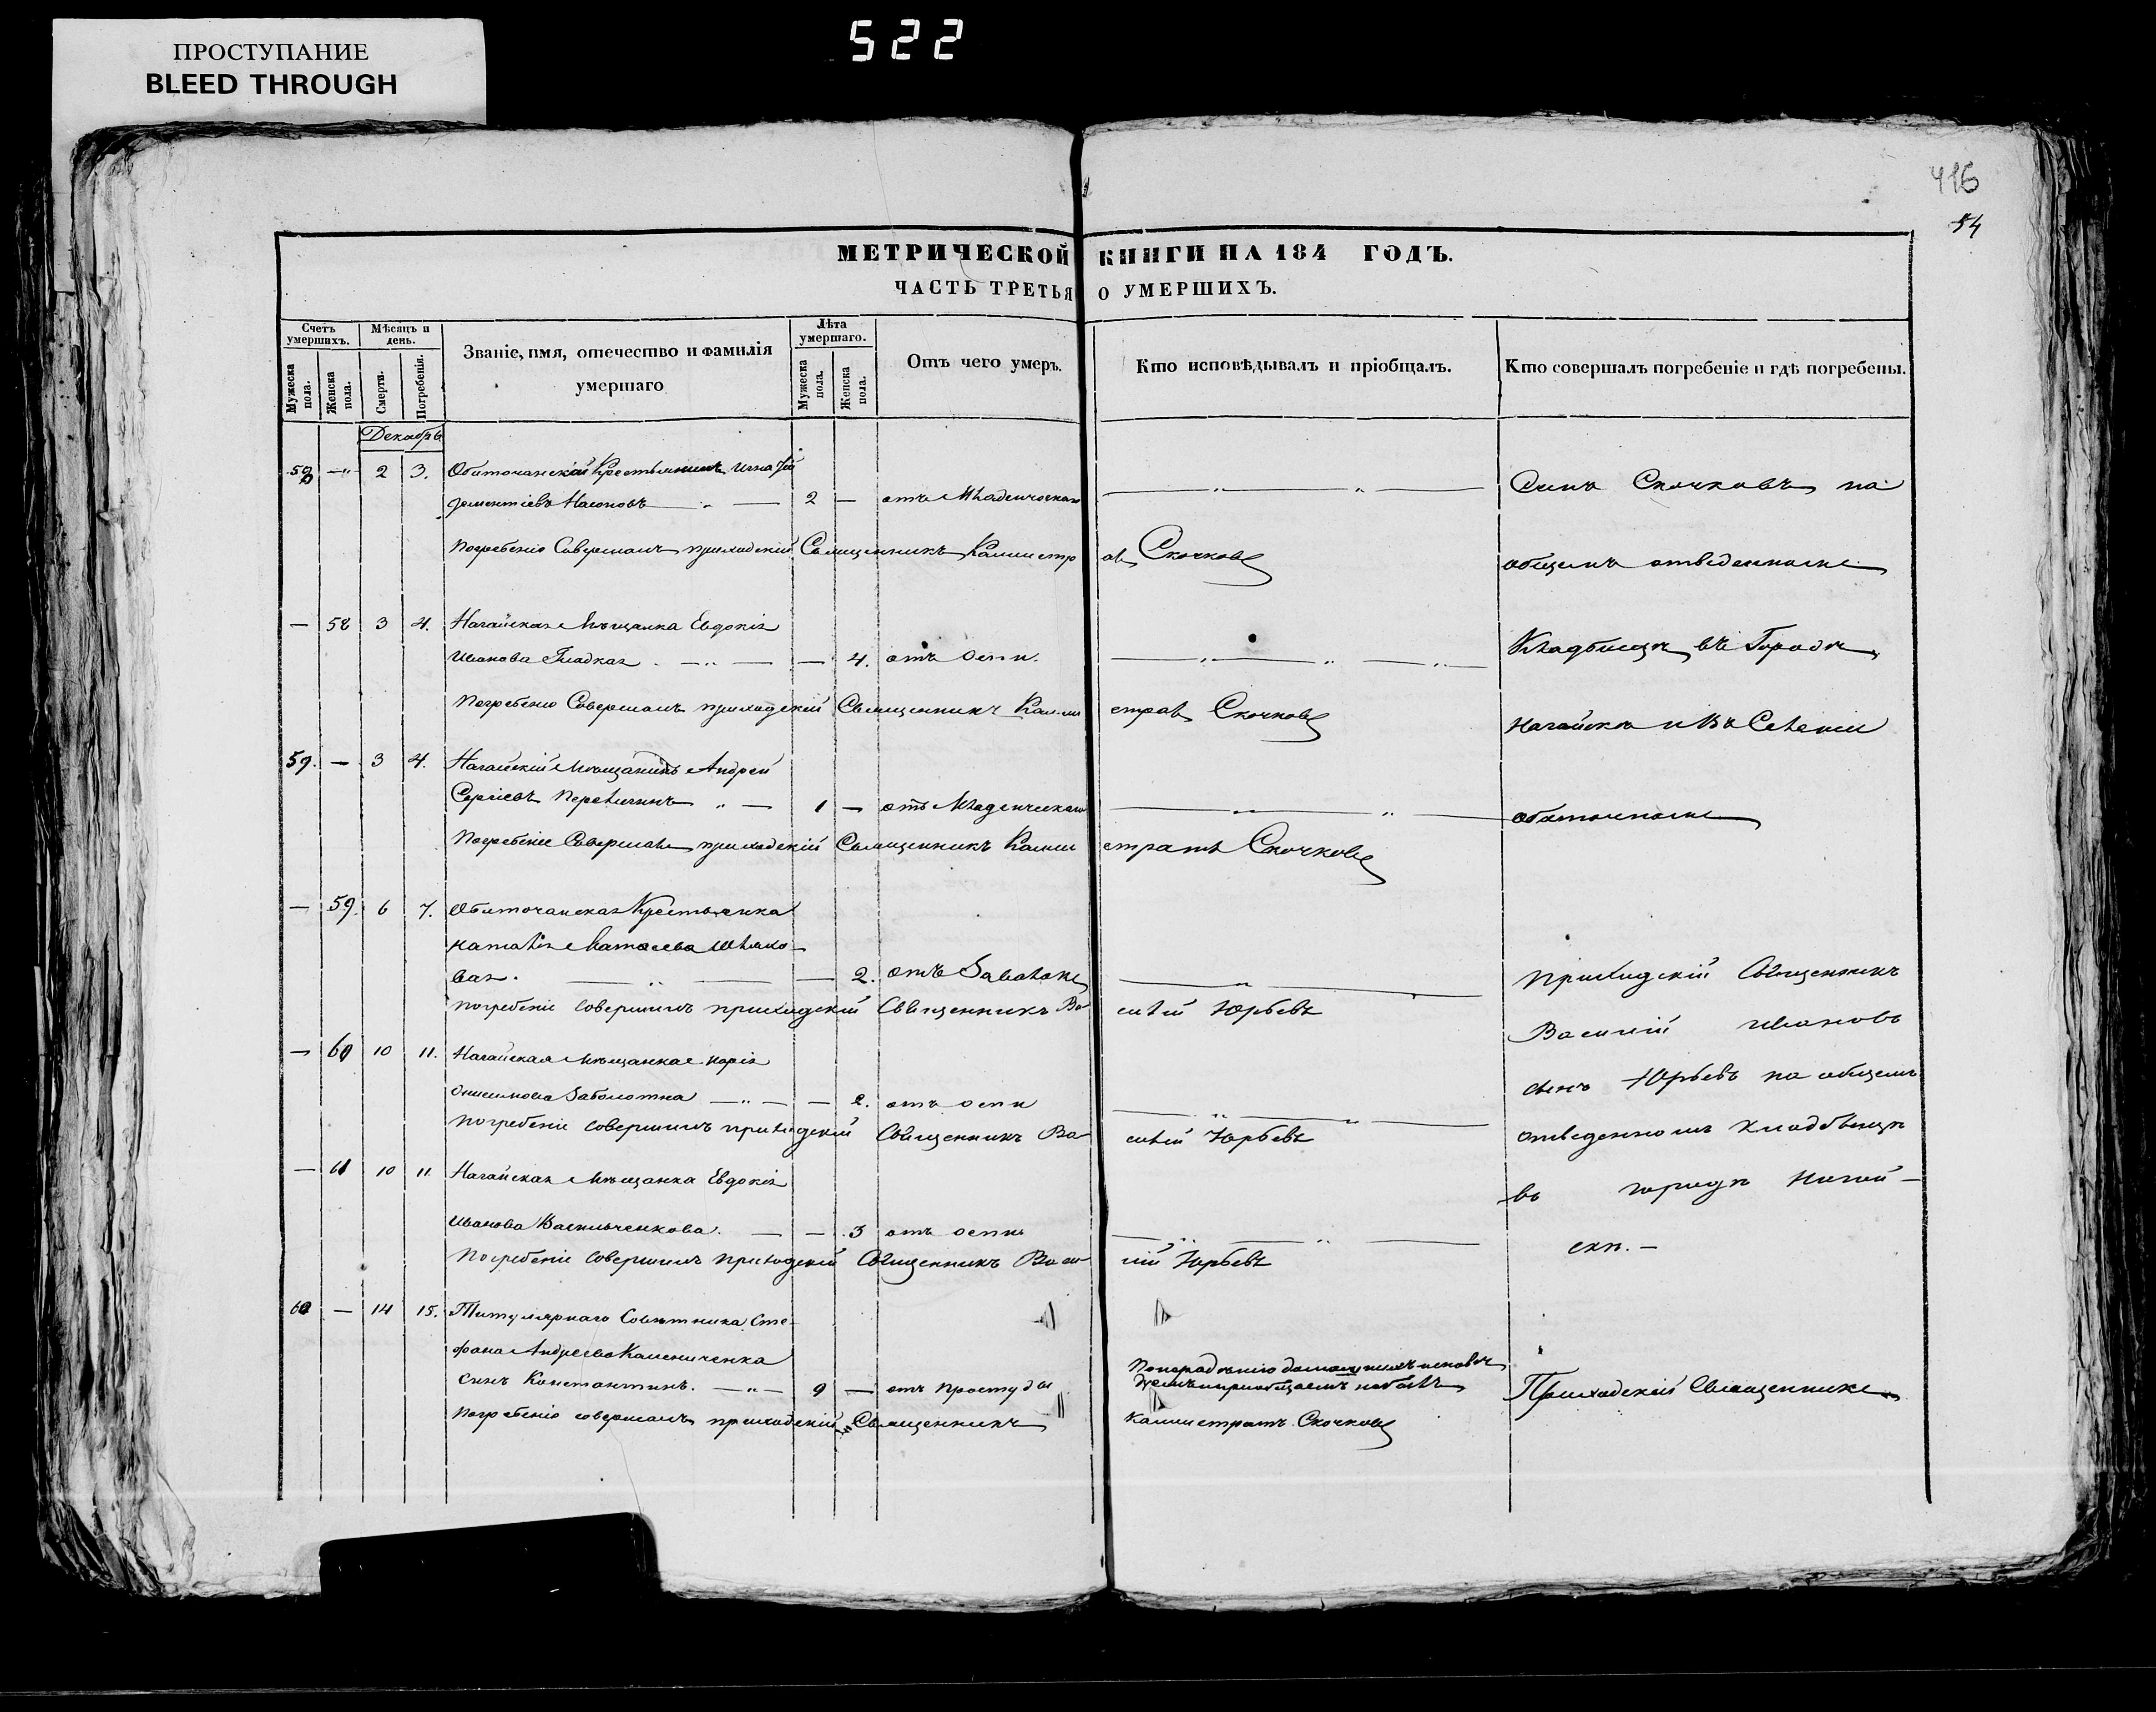 ПРОСТУПАНИЕ
BLEED THROUGH
522
416
54
МЕТРИЧЕСКОЙ КНИГИ НА 184 ГОДЪ.
ЧАСТЬ ТРЕТЬЯ О УМЕРШИХЪ.
Счетъ умершихъ.
Мужеска пола.
Женска пола.
Мѣсяцъ и день.
Смерти.
Погребенія.
Званіе, имя, отечество и фамилія умершаго
Лѣта умершаго.
Мужеска пола.
Женска пола.
Отъ чего умеръ.
Кто исповѣдывалъ и пріобщалъ.
Кто совершалъ погребеніе и гдѣ погребены.
Декабрь
58 — 2 3. Обиточанскій Крестьянинъ Игнатій
Дементіевъ Насоновъ — 2 — отъ Младенческаго
Погребеніе Совершалъ приходскій Священникъ Каллистратъ Скочковъ
— 58 3 4. Нагайская Мѣщанка Евдокія
Иванова Гладкая — 4. отъ оспи.
Погребеніе Совершалъ приходскій Священникъ Каллистратъ Скочковъ
59. — 3 4. Нагайскій Мѣщанинъ Андрей
Сергіевъ 1 — отъ Младенческаго
Погребеніе Совершалъ приходскій Священникъ Каллистратъ Скочковъ
— 59. 6 7. Обиточанская Крестьянка
Наталія
вая. — 2. отъ
Погребеніе совершилъ приходскій Священникъ Василій Юрьевъ
— 60 10 11. Нагайская Мѣщанка Марія
Онисимова Заболотна — 2. отъ оспи
Погребеніе совершилъ приходскій Священникъ Василій Юрьевъ
— 61 10 11 Нагайская Мѣщанка Евдокія
Иванова Васильченкова. — 3 отъ оспи
Погребеніе совершилъ приходскій Священникъ Василій Юрьевъ
60 — 14 15. Титулярнаго Совѣтника Сте-
фана Андреева Калениченка
синъ Константинъ. — 9 — отъ простуды
Погребеніе совершалъ приходскій Священникъ Каллистратъ Скочковъ
Скочковъ на
общемъ отведенномъ
Кладбищѣ въ Городѣ
Нагайскѣ и въ Селеніи
Обиточномъ
Приходскій Священникъ
Василій Ивановъ
сынъ Юрьевъ на общемъ
отведенномъ кладбищѣ
въ городѣ Нагай-
скѣ. —
Приходскій Священникъ